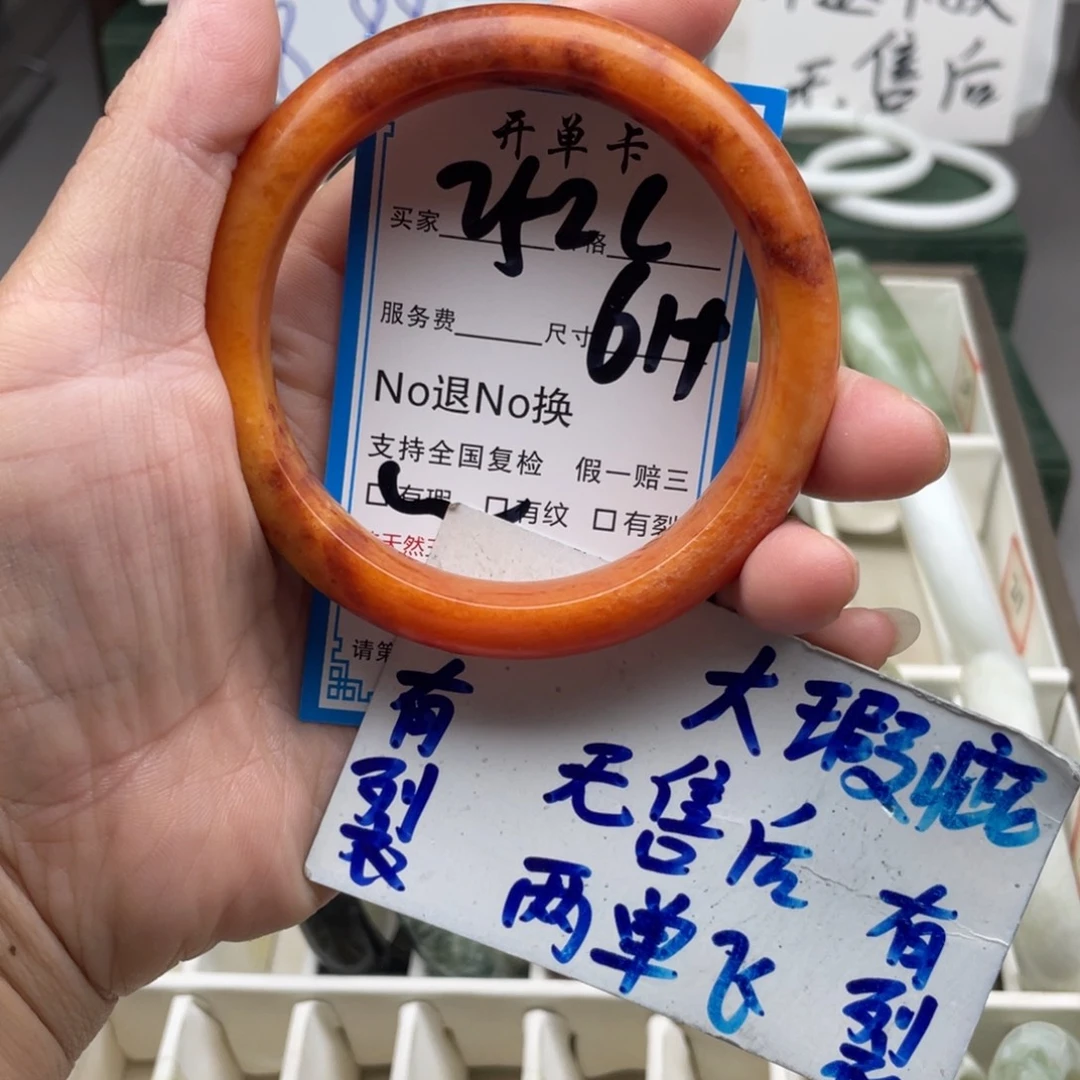 无售后
开单卡
买家
格
服务费 尺寸
No退No换
支持全国复检 假一赔三
有瑕 有纹 有裂
天然
请第
有裂
大瑕疵
无售后
两单飞
有裂